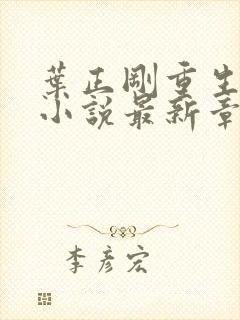 葉正剛重生
小說最新章
李彥宏